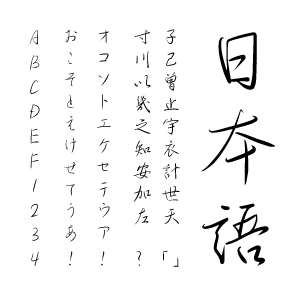 日本語
子己曽止宇衣計世天 「」
寸川以幾之知安加左 ?
オコソトエケセテウア!
おこそとえけせてうあ!
ABCDEF1234